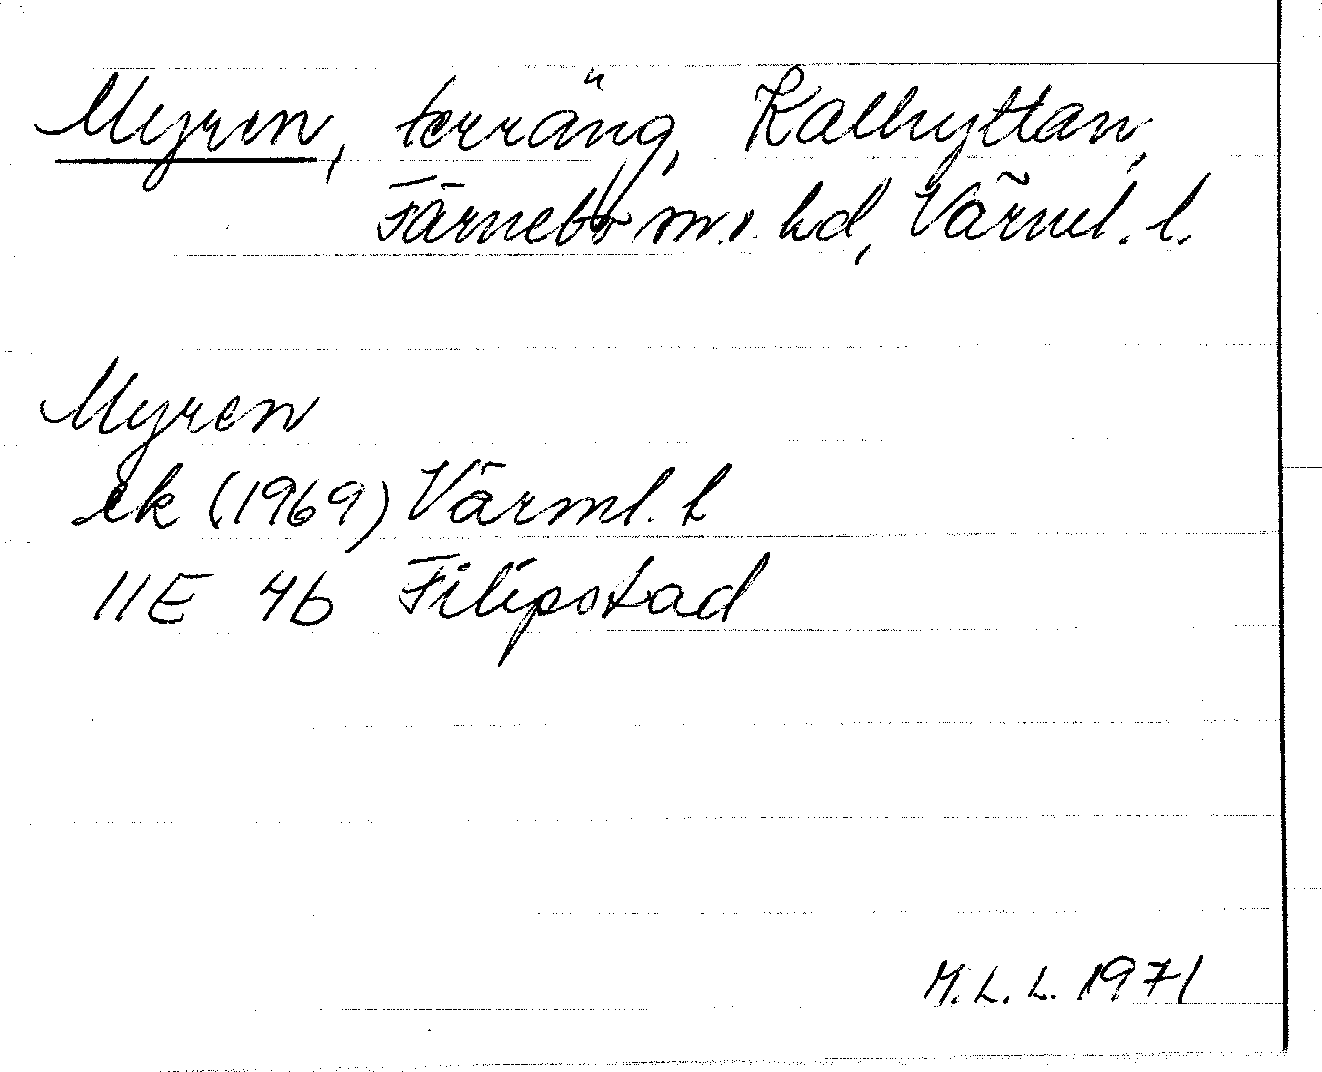 Myren, terräng, Kalhyttan,
Färnebo m.s. hd, Värml. l.
Myren
ek (1969) Värml. l
11E 4b Filipstad
M.L.L. 1971